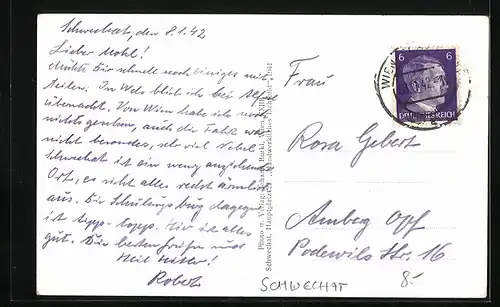 Schwechat, den 8.1.42
Lieber Mohl!
Möchte Dir schnell noch einiges mit-
teilen. In Wels blieb ich bei Alfred
übernacht. Von Wien habe ich noch
nichts gesehen, auch die Fahrt war
nicht besonders, sah viel Nebel.
Schwechat ist ein wenig
Ort, es sieht alles recht ärmlich
aus. Die Schulungsburg dagegen
ist tipp-topp. Hier ist alles
gut. Die besten Grüße und
Heil Hitler!
Robert
Photo u. Verlag: Johann Burkl,
Schwechat, Hauptplatz
6 6
DEUTSCHES REICH
WIEN
Frau
Rosa Gebert
Amberg Opf
Podewils Str. 16
SCHWECHAT
8.-